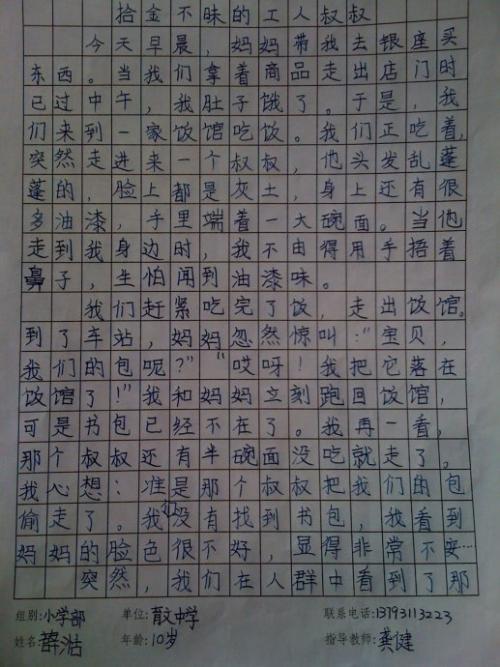 拾金不昧的工人叔叔
今天早晨，妈妈带我去银座买
东西。当我们拿着商品走出店门时
已过中午，我肚子饿了。于是，我
们来到一家饭馆吃饭。我们正吃着，
突然走进来一个叔叔，他头发乱蓬
蓬的，脸上都是灰土，身上还有很
多油漆，手里端着一大碗面。当他
走到我身边时，我不由得用手捂着
鼻子，生怕闻到油漆味。
我们赶紧吃完了饭，走出饭馆。
到了车站，妈妈忽然惊叫："宝贝，
我们的包呢？""哎呀！我把它落在
饭馆了！"我和妈妈立刻跑回饭馆，
可是书包已经不在了。我再一看，
那个叔叔还有半碗面没吃就走了。
我心想：准是那个叔叔把我们的包
偷走了。我们没有找到书包，我看到
妈妈的脸色很不好，显得非常不安…
突然，我们在人群中看到了那
组别:小学部 单位:育文中学 联系电话:13793113223
姓名:薛沽 年龄:10岁 指导教师:龚健